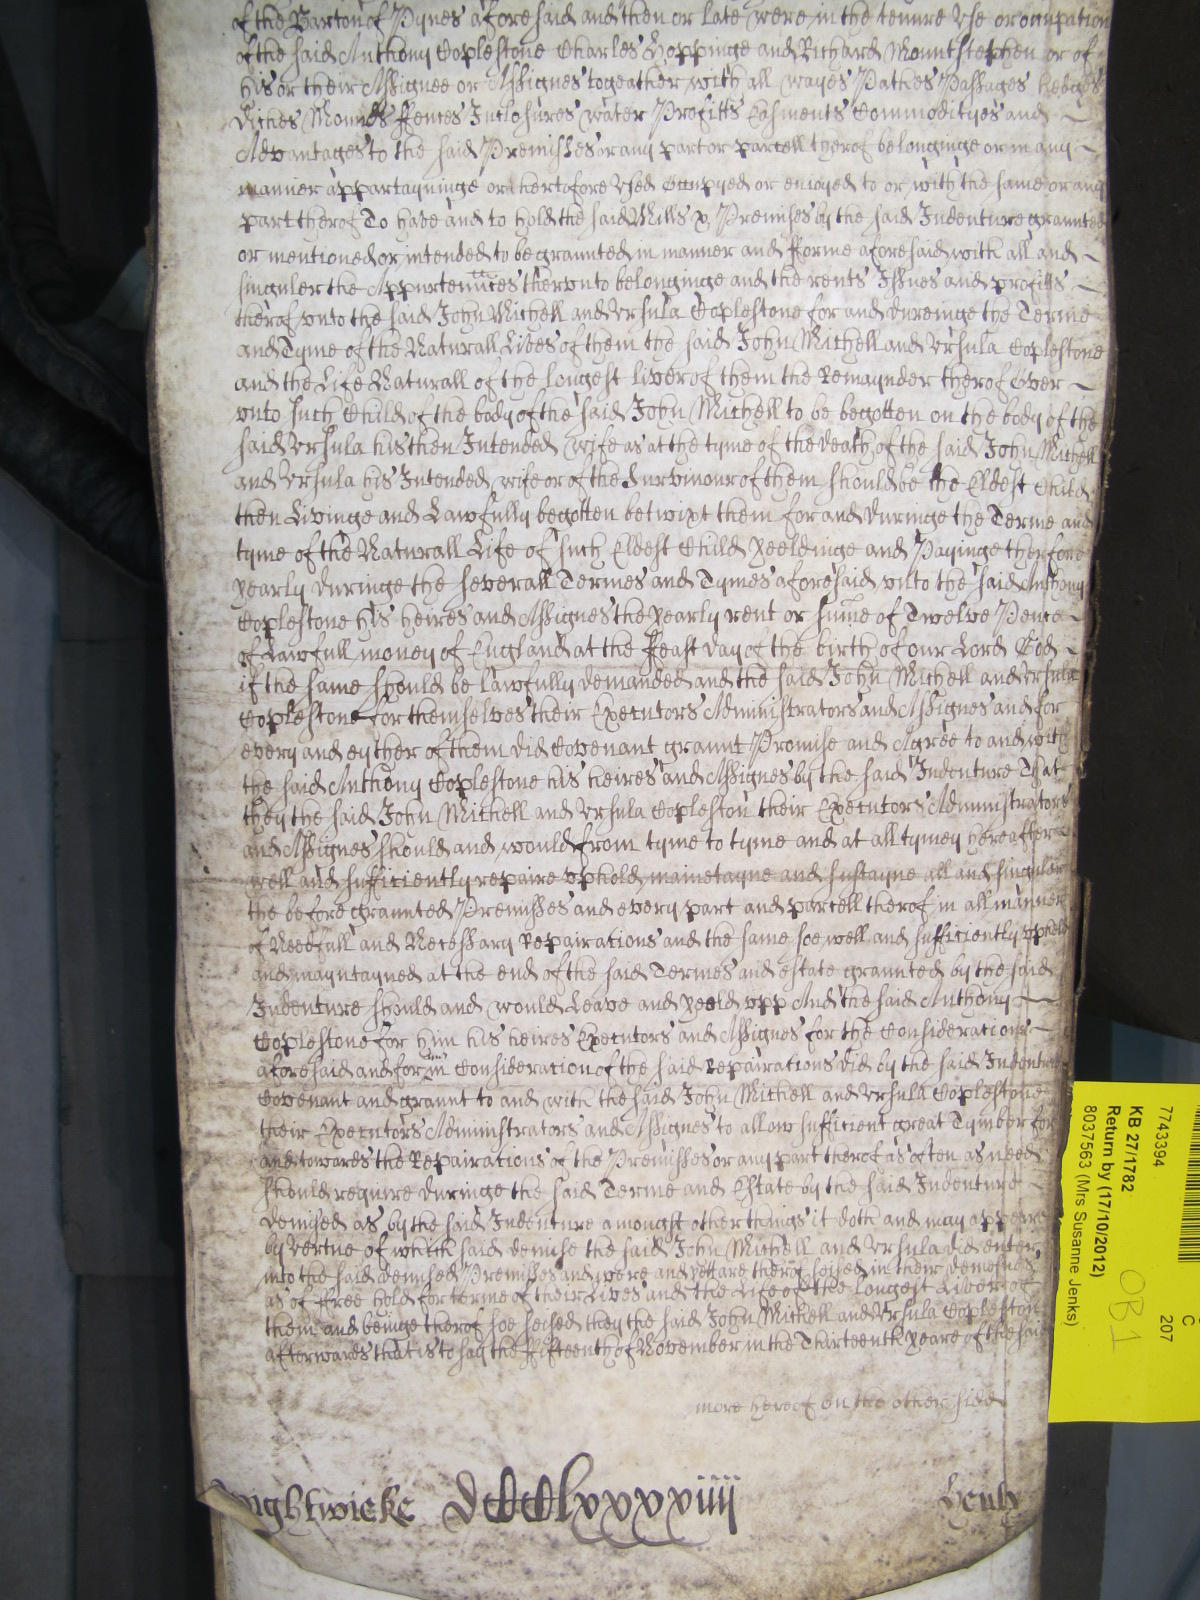 of the Barton of Pynes aforesaid and then or late were in the tenure Use or occupation
of the said Anthony Coplestone Charles Hoppinge and Richard Mountstephen or of
his or their Assignee or Assignes togeather with all wayes Pathes Passages hedges
Ditches Mounds ffences Inclosures water Profitts Easments Commodityes and
Advantages to the said Premisses or any part or parcell therof belonginge or in any
manner appartayninge or hertofore Used Occupyed or enioyed to or with the same or any
part therof To have and to hold the said Mills & Premises by the said Indenture graunted
or mentioned or intended to be graunted in manner and fforme aforesaid with all and
singuler the Appurtenances therunto belonginge and the rents Issues and profitts
therof unto the said John Michell and Ursula Coplestone for and dureinge the Terme
and Tyme of the Naturall Lives of them the said John Michell and Ursula Coplestone
and the Life Naturall of the longest liver of them the Remaynder therof Over
unto such Child of the body of the said John Michell to be begotten on the body of the
said Ursula his then Intended wife as at the tyme of the death of the said John Michell
and Ursula his Intended wife or of the Survivour of them should be the Eldest Child
then Livinge and Lawfully begotten betwixt them for and duringe the Terme and
tyme of the Naturall Life of such Eldest Child yeeldinge and Payinge therfore
yearly duringe the severall Termes and Tymes aforesaid unto the said Anthony
Coplestone his heires and Assignes the yearly rent or summe of Twelve Pence
of Lawfull money of England at the ffeast day of the birth of our Lord God
if the same should be lawfully demanded and the said John Michell and Ursula
Coplestone for themselves their Executors Administrators and Assignes and for
every and eyther of them did Covenant graunt Promise and Agree to and with
the said Anthony Coplestone his heires and Assignes by the said Indenture That
they the said John Michell and Ursula Copleston their Executors Administrators
and Assignes should and would from tyme to tyme and at all tymes hereafter
well and sufficiently repaire uphold mainetayne and sustayne all and singuler
the before graunted Premisses and every part and parcell therof in all manner
of Needfull and Necessary Repairations and the same soe well and sufficiently upheld
and mayntayned at the end of the said Termes and estate graunted by the said
Indenture should and would Leave and yeeld upp And the said Anthony
Coplestone for him his heires Executors and Assignes for the Considerations
aforesaid and for in Consideration of the said Repairations did by the said Indenture
Covenant and graunt to and with the said John Michell and Ursula Coplestone
their Executors Administrators and Assignes to allow sufficient great Tymber for
and towards the Repairations of the Premisses or any part therof as often as need
should require duringe the said Terme and Estate by the said Indenture
demised as by the said Indenture amongst other things it doth and may appeare
by vertue of which said demise the said John Michell and Ursula did enter
into the said demised Premisses and were and yett are therof seised in their demesnes
as of ffree hold for terme of their Lives and the Life of the Longest Liver of
them and beinge therof soe seised they the said John Michell and Ursula Copleston
afterwards that is to say the ffifteenth of November in the Thirteenth yeare of the said
more hereof on the other side
ghtwicke DCCCClxxxxviiij Henly
7743394
KB 27/1782
Return by (17/10/2012)
8037563 (Mrs Susanne Jenks)
C
207
OB1